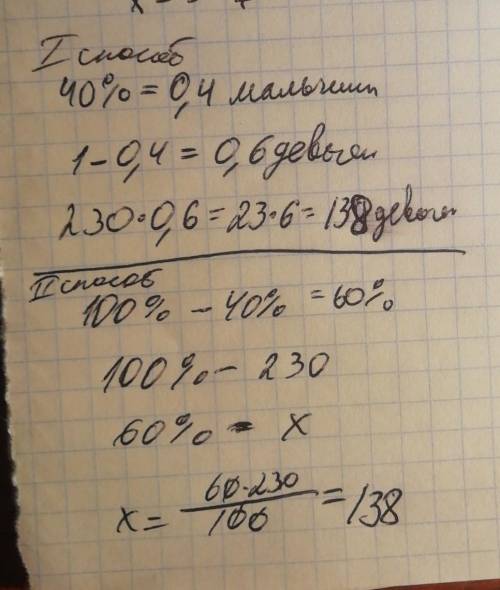 I способ
40% = 0,4 мальчики
1 - 0,4 = 0,6 девочки
230·0,6 = 23·6 = 138 девочек
II способ
100% - 40% = 60%
100% - 230
60% - x
x = 60·230/100 = 138